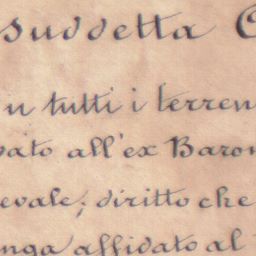 suddetta C
su tutti i terren
vato all'ex Baron
evale; diritto che
nga affidato al